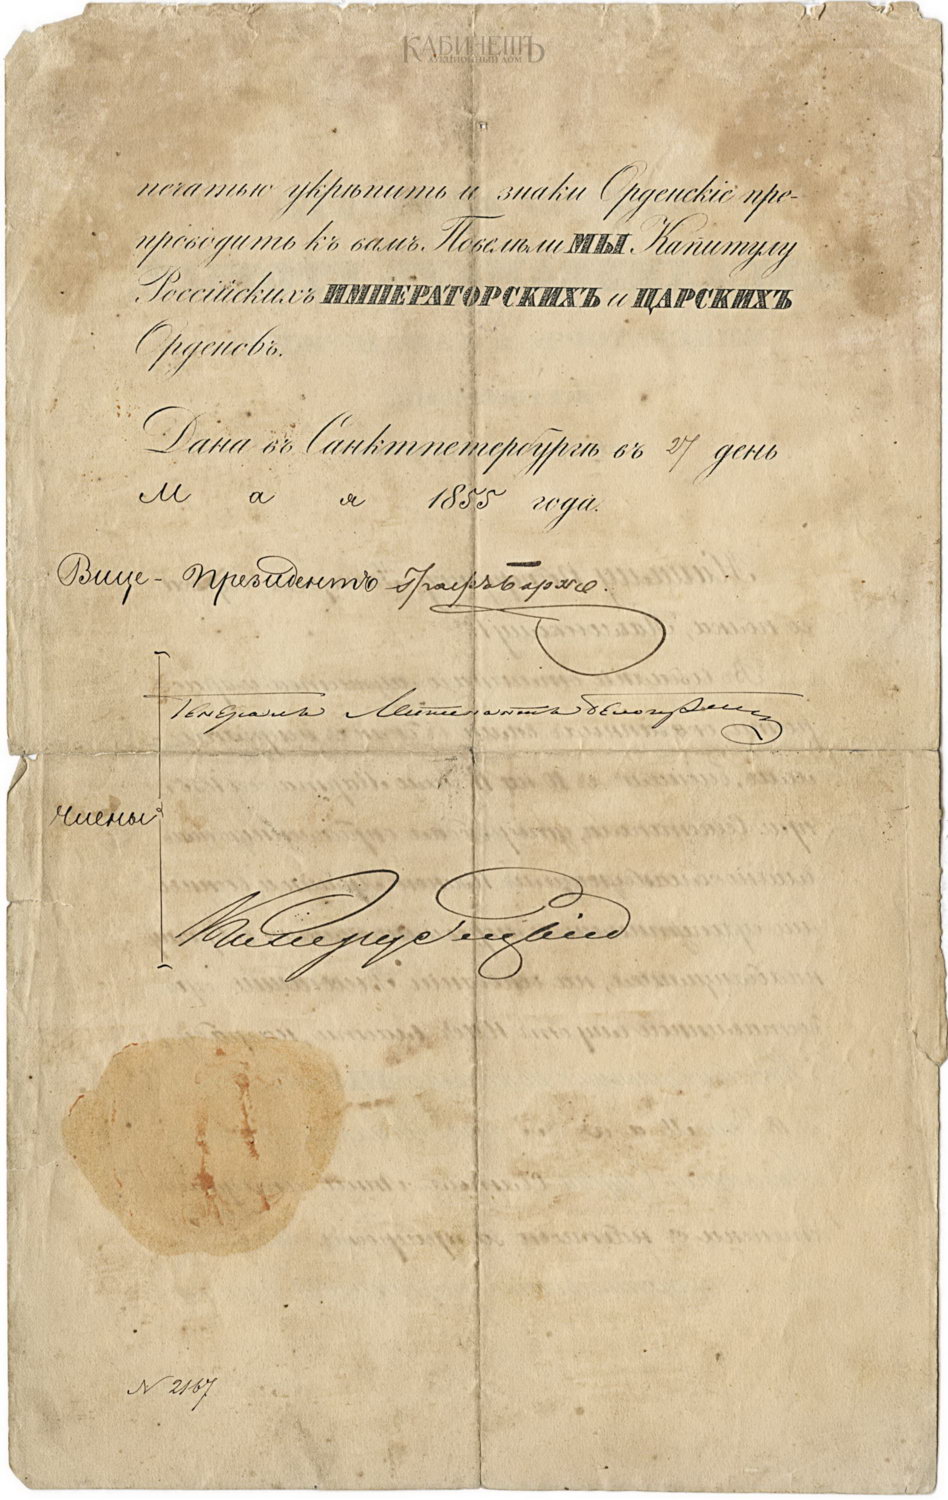 КАБИНЕТЪ
АУКЦИОННЫЙ ДОМ
печатью укрѣпить и знаки Орденскіе пре-
проводить къ вамъ. Повелѣли МЫ Капитулу
Россійскихъ ИМПЕРАТОРСКИХЪ и ЦАРСКИХЪ
Орденовъ.
Дана въ Санктпетербургѣ въ 27 день
Мая 1855 года.
Вице-Президентъ Графъ
Генералъ Лейтенантъ
Члены
N 2167